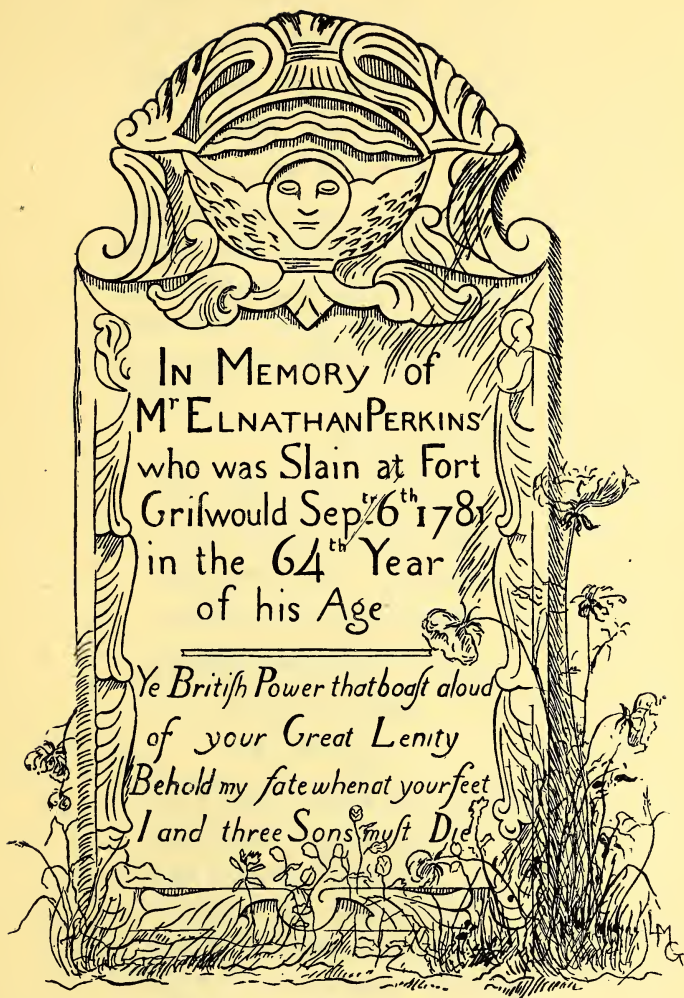 In Memory of
Mr Elnathan Perkins
who was Slain at Fort
Griſwould Septr 6th 1781
in the 64th Year
of his Age
Ye Britiſh Power that boaſt aloud
of your Great Lenity
Behold my fate when at your feet
I and three Sons muſt Die
LMG